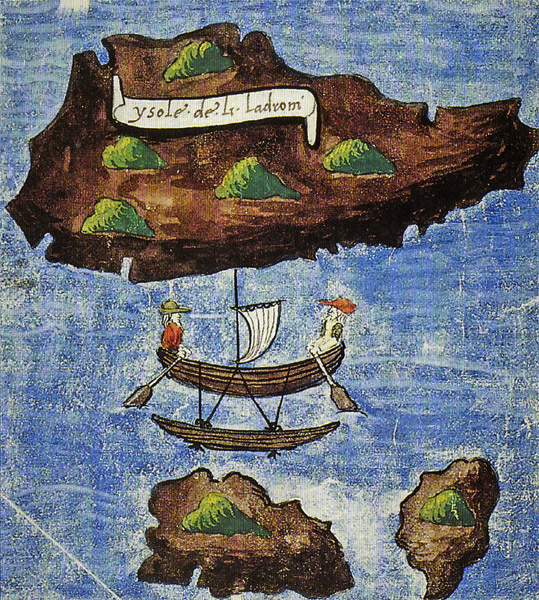 ysole de li ladroni